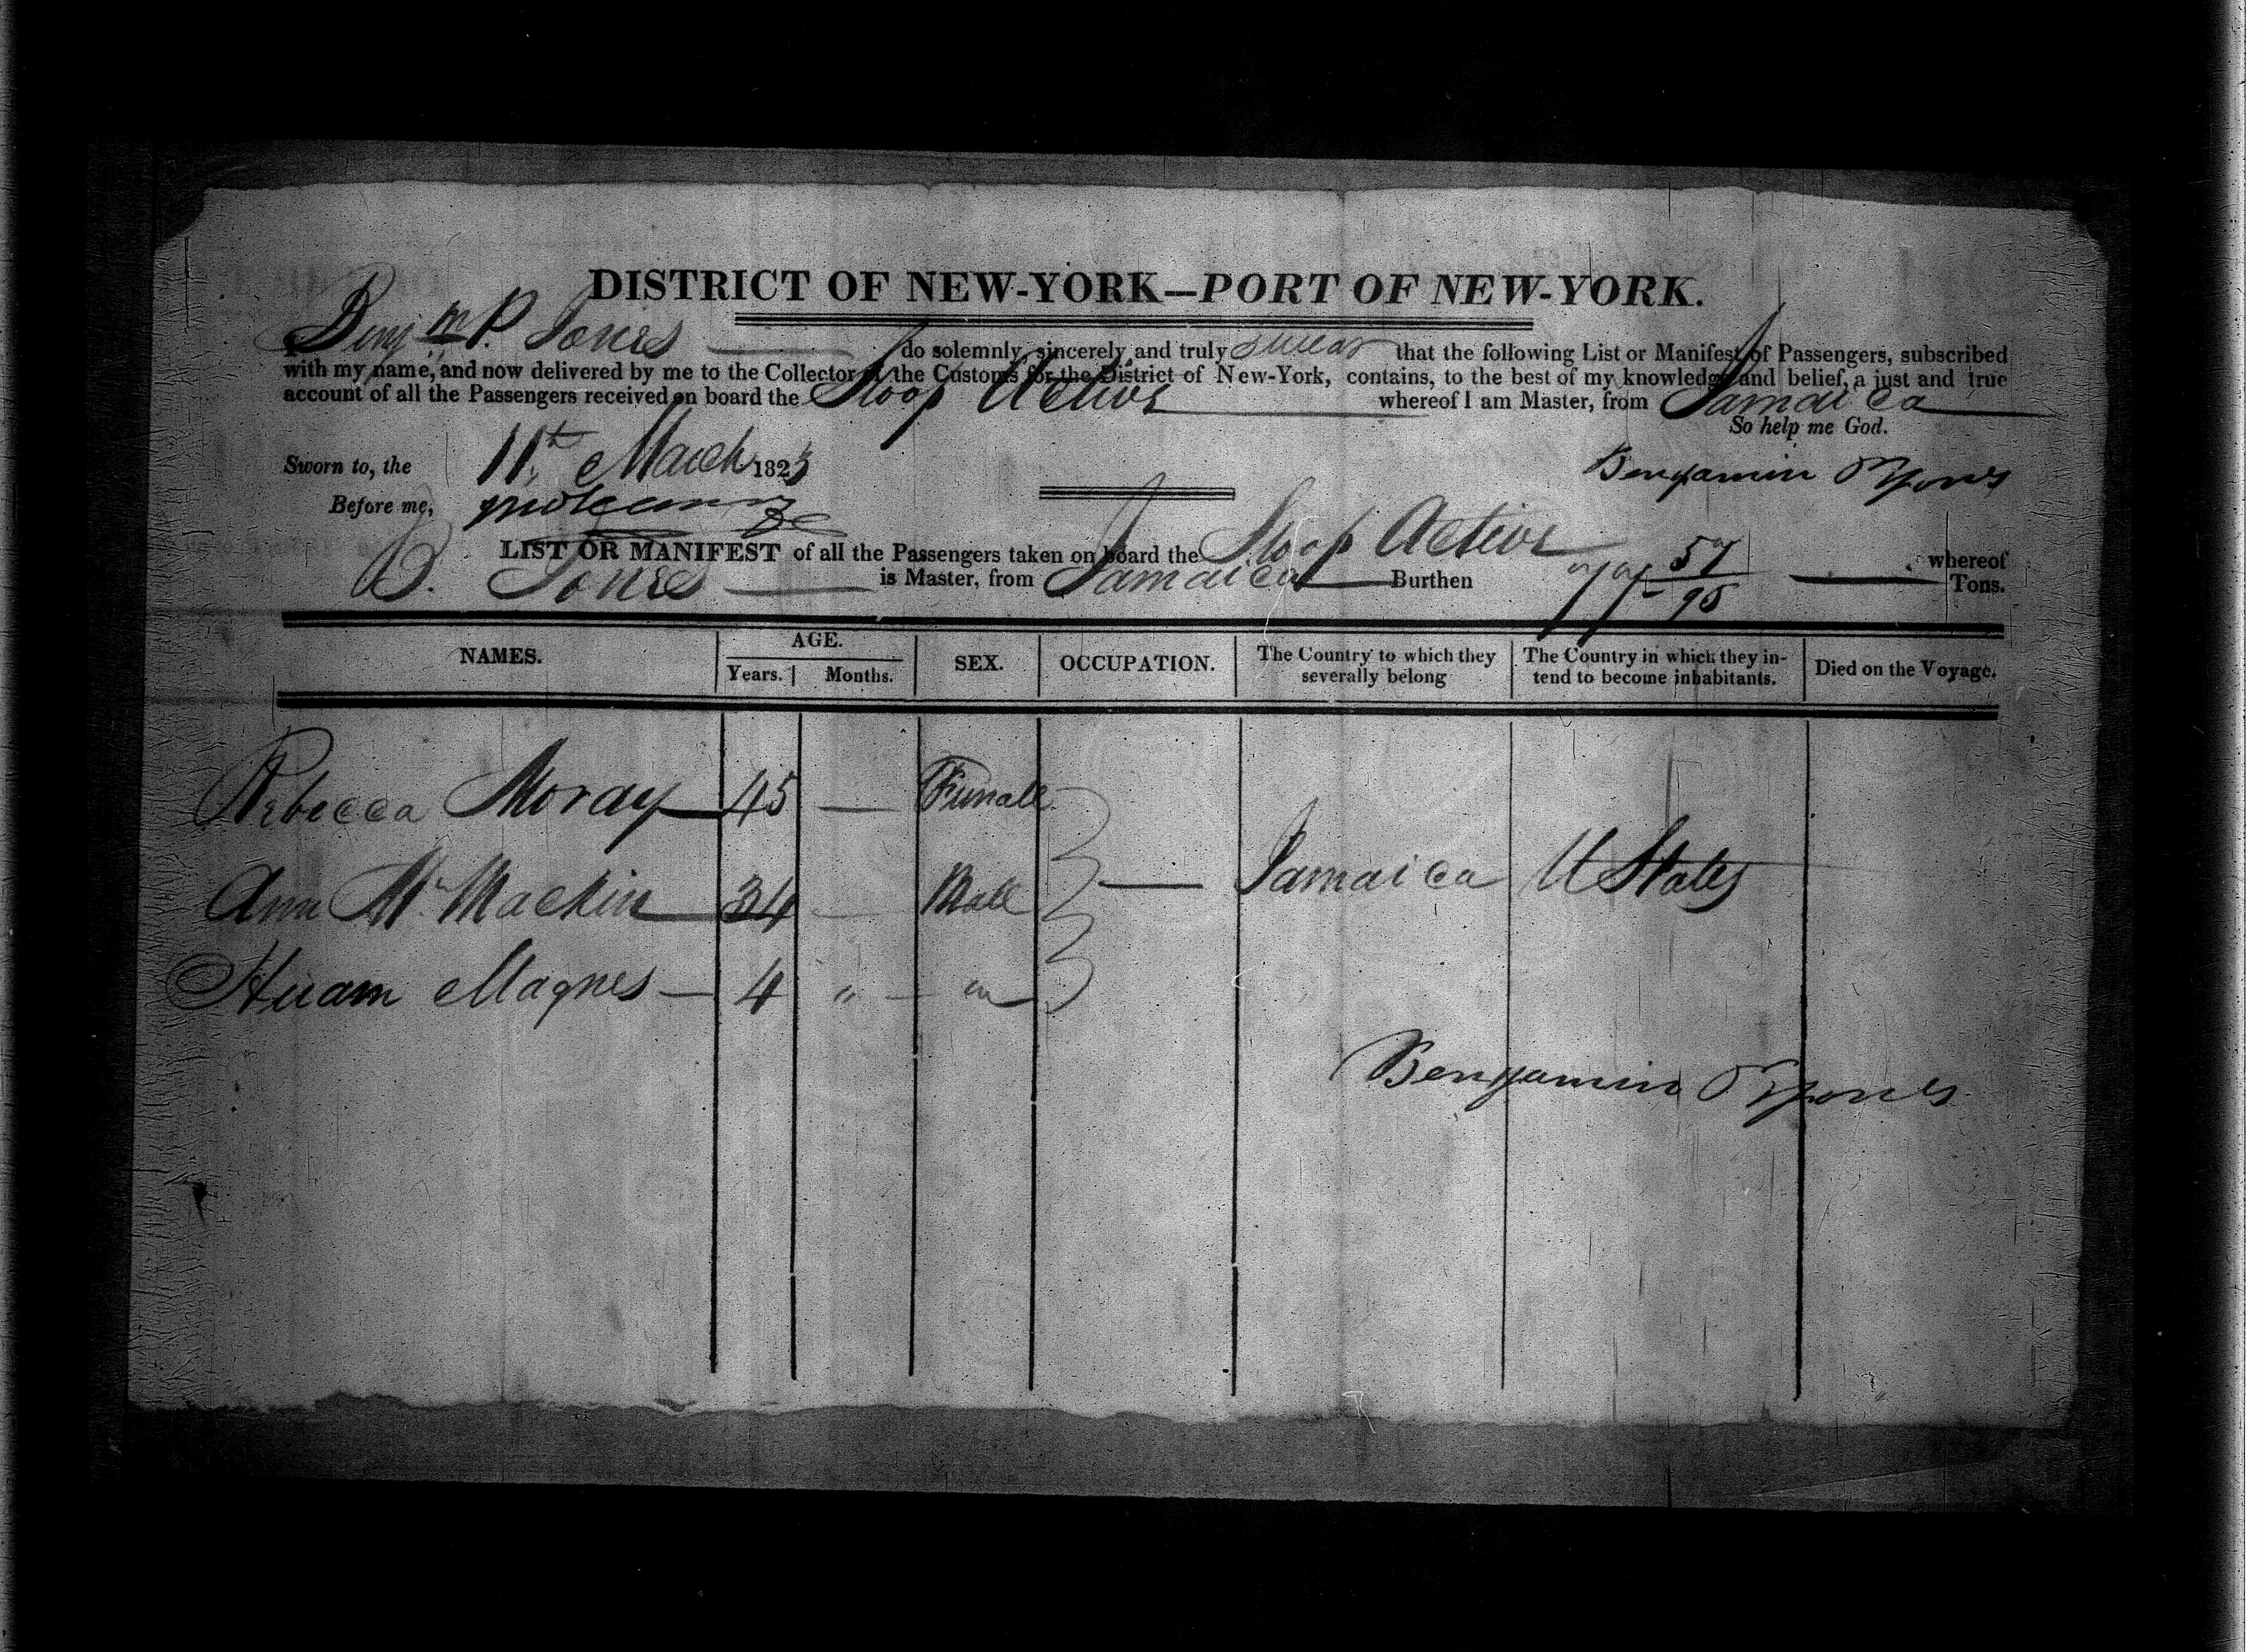 DISTRICT OF NEW-YORK—PORT OF NEW-YORK.
I Benjm P. Jones do solemnly, sincerely and truly swear that the following List or Manifest of Passengers, subscribed
with my name, and now delivered by me to the Collector of the Customs for the District of New-York, contains, to the best of my knowledge and belief, a just and true
account of all the Passengers received on board the Sloop Active whereof I am Master, from Jamaica
So help me God.
Sworn to, the 11th March 1823 Benjamin P Jones
Before me,
LIST OR MANIFEST of all the Passengers taken on board the Sloop Active whereof
B. Jones is Master, from Jamaica Burthen 77 57/95 Tons.
NAMES. AGE. Years. Months. SEX. OCCUPATION. The Country to which they severally belong The Country in which they intend to become inhabitants. Died on the Voyage.
Rebecca Moray 45 — Female
Ann Mc Mackin 34 — Male — Jamaica U States
Hiram Magnes — 4 " — "
Benjamin P Jones